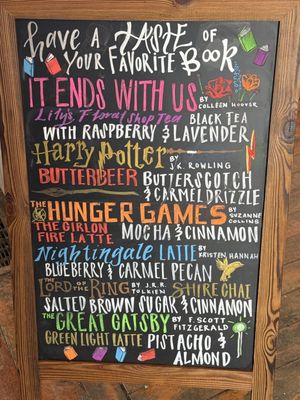 have a TASTE of
your favorite Book
IT ENDS WITH US
BY COLLEEN HOOVER
Lily's Floral Shop Tea
BLACK TEA
WITH RASPBERRY & LAVENDER
Harry Potter
BY J.K. ROWLING
BUTTERBEER
BUTTERSCOTCH
& CARMEL DRIZZLE
THE HUNGER GAMES
BY SUZANNE COLLINS
THE GIRLON
FIRE LATTE
MOCHA & CINNAMON
Nightingale Latte
BY KRISTEN HANNAH
BLUEBERRY & CARMEL PECAN
THE LORD OF THE RING
BY J.R.R. TOLKIEN
SHIRE CHAI
SALTED BROWN SUGAR & CINNAMON
THE GREAT GATSBY
BY F. SCOTT FITZGERALD
GREEN LIGHT LATTE
PISTACHIO &
ALMOND